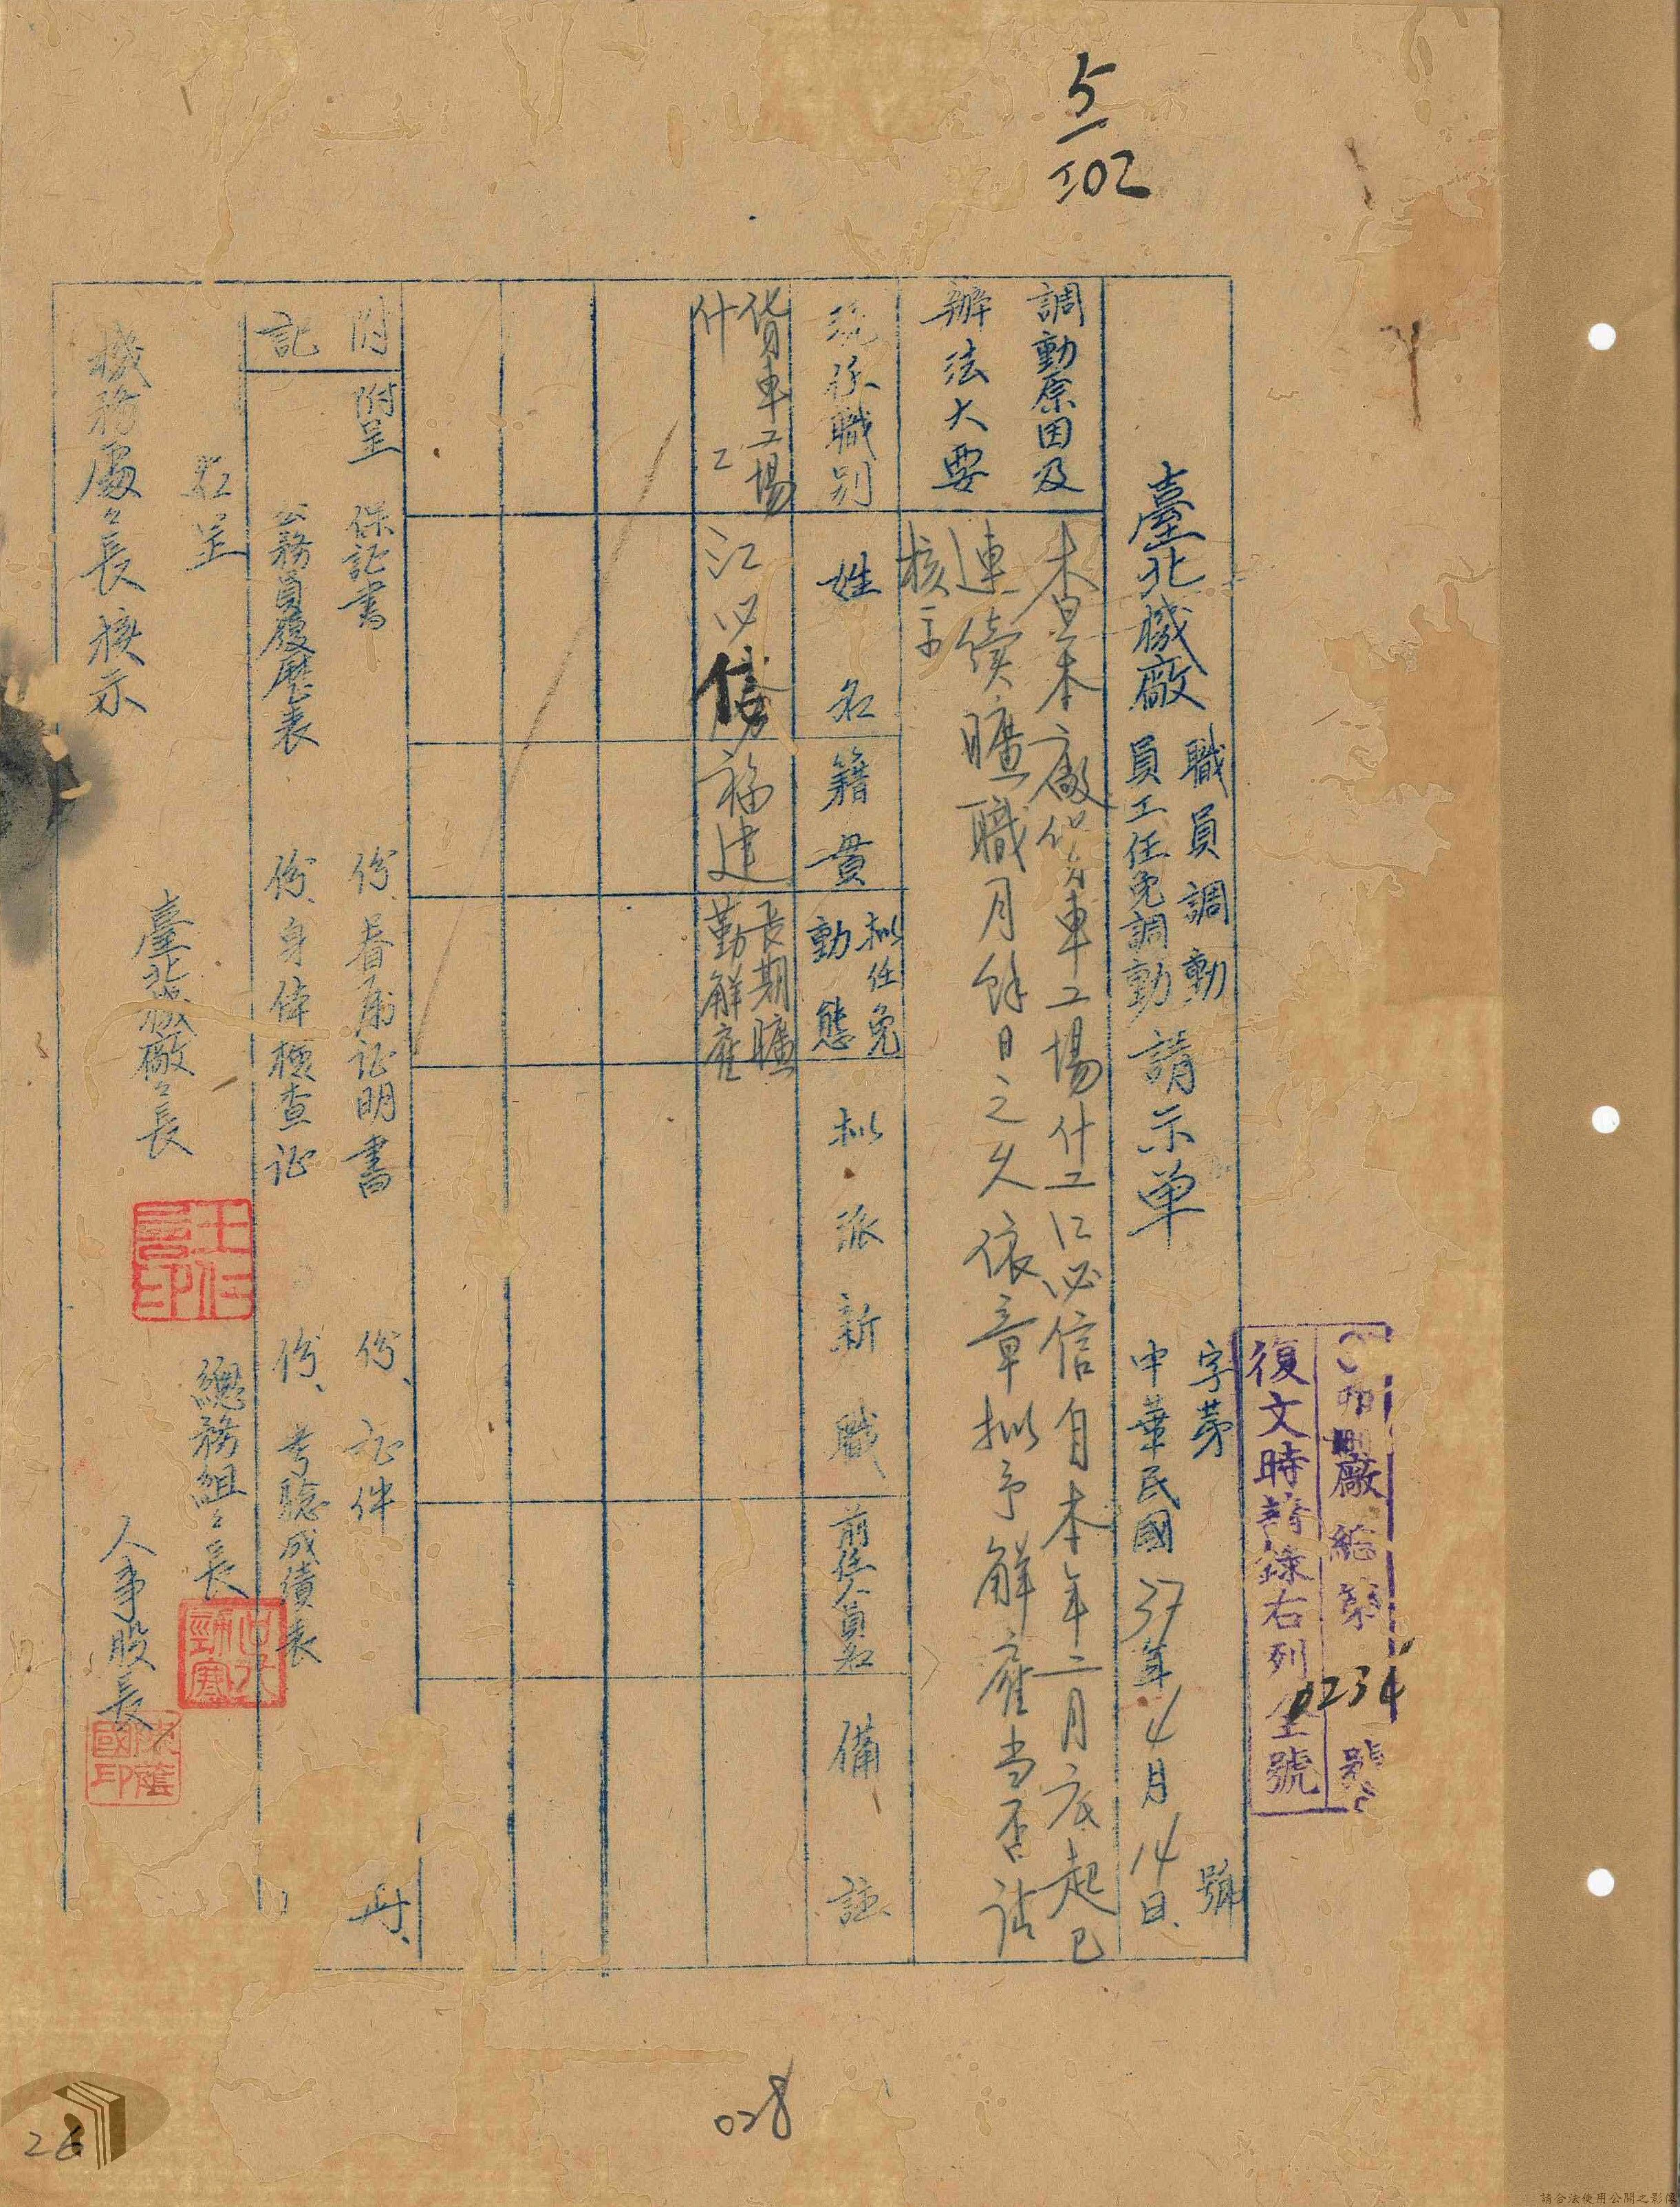 5
202
卯 廠總第0234號
復文時請錄右列全號
字第 號
臺北機廠 職員調動 員工任免調動 請示单
中華民國37年4月14日
調動原因及
辦法大要
本廠貨車工場什工江必信自本年二月底起已
連續曠職月餘日之久依章拟予解雇当否請
核示
現任職別
姓名
籍貫
拟任免
動態
拟派新職
前任人員名
備註
貨車工場
什工
江必信
福建
長期曠
勤解雇
附記
附呈 保証書 份、眷屬証明書 份、証件 件、
公務員履歷表 份、身体檢查証 份、考騐成績表
右呈
機務處々長 核示
臺北機廠々長
王仁言印
總務組々長
人事股長
028
26
請合法使用公開之影像